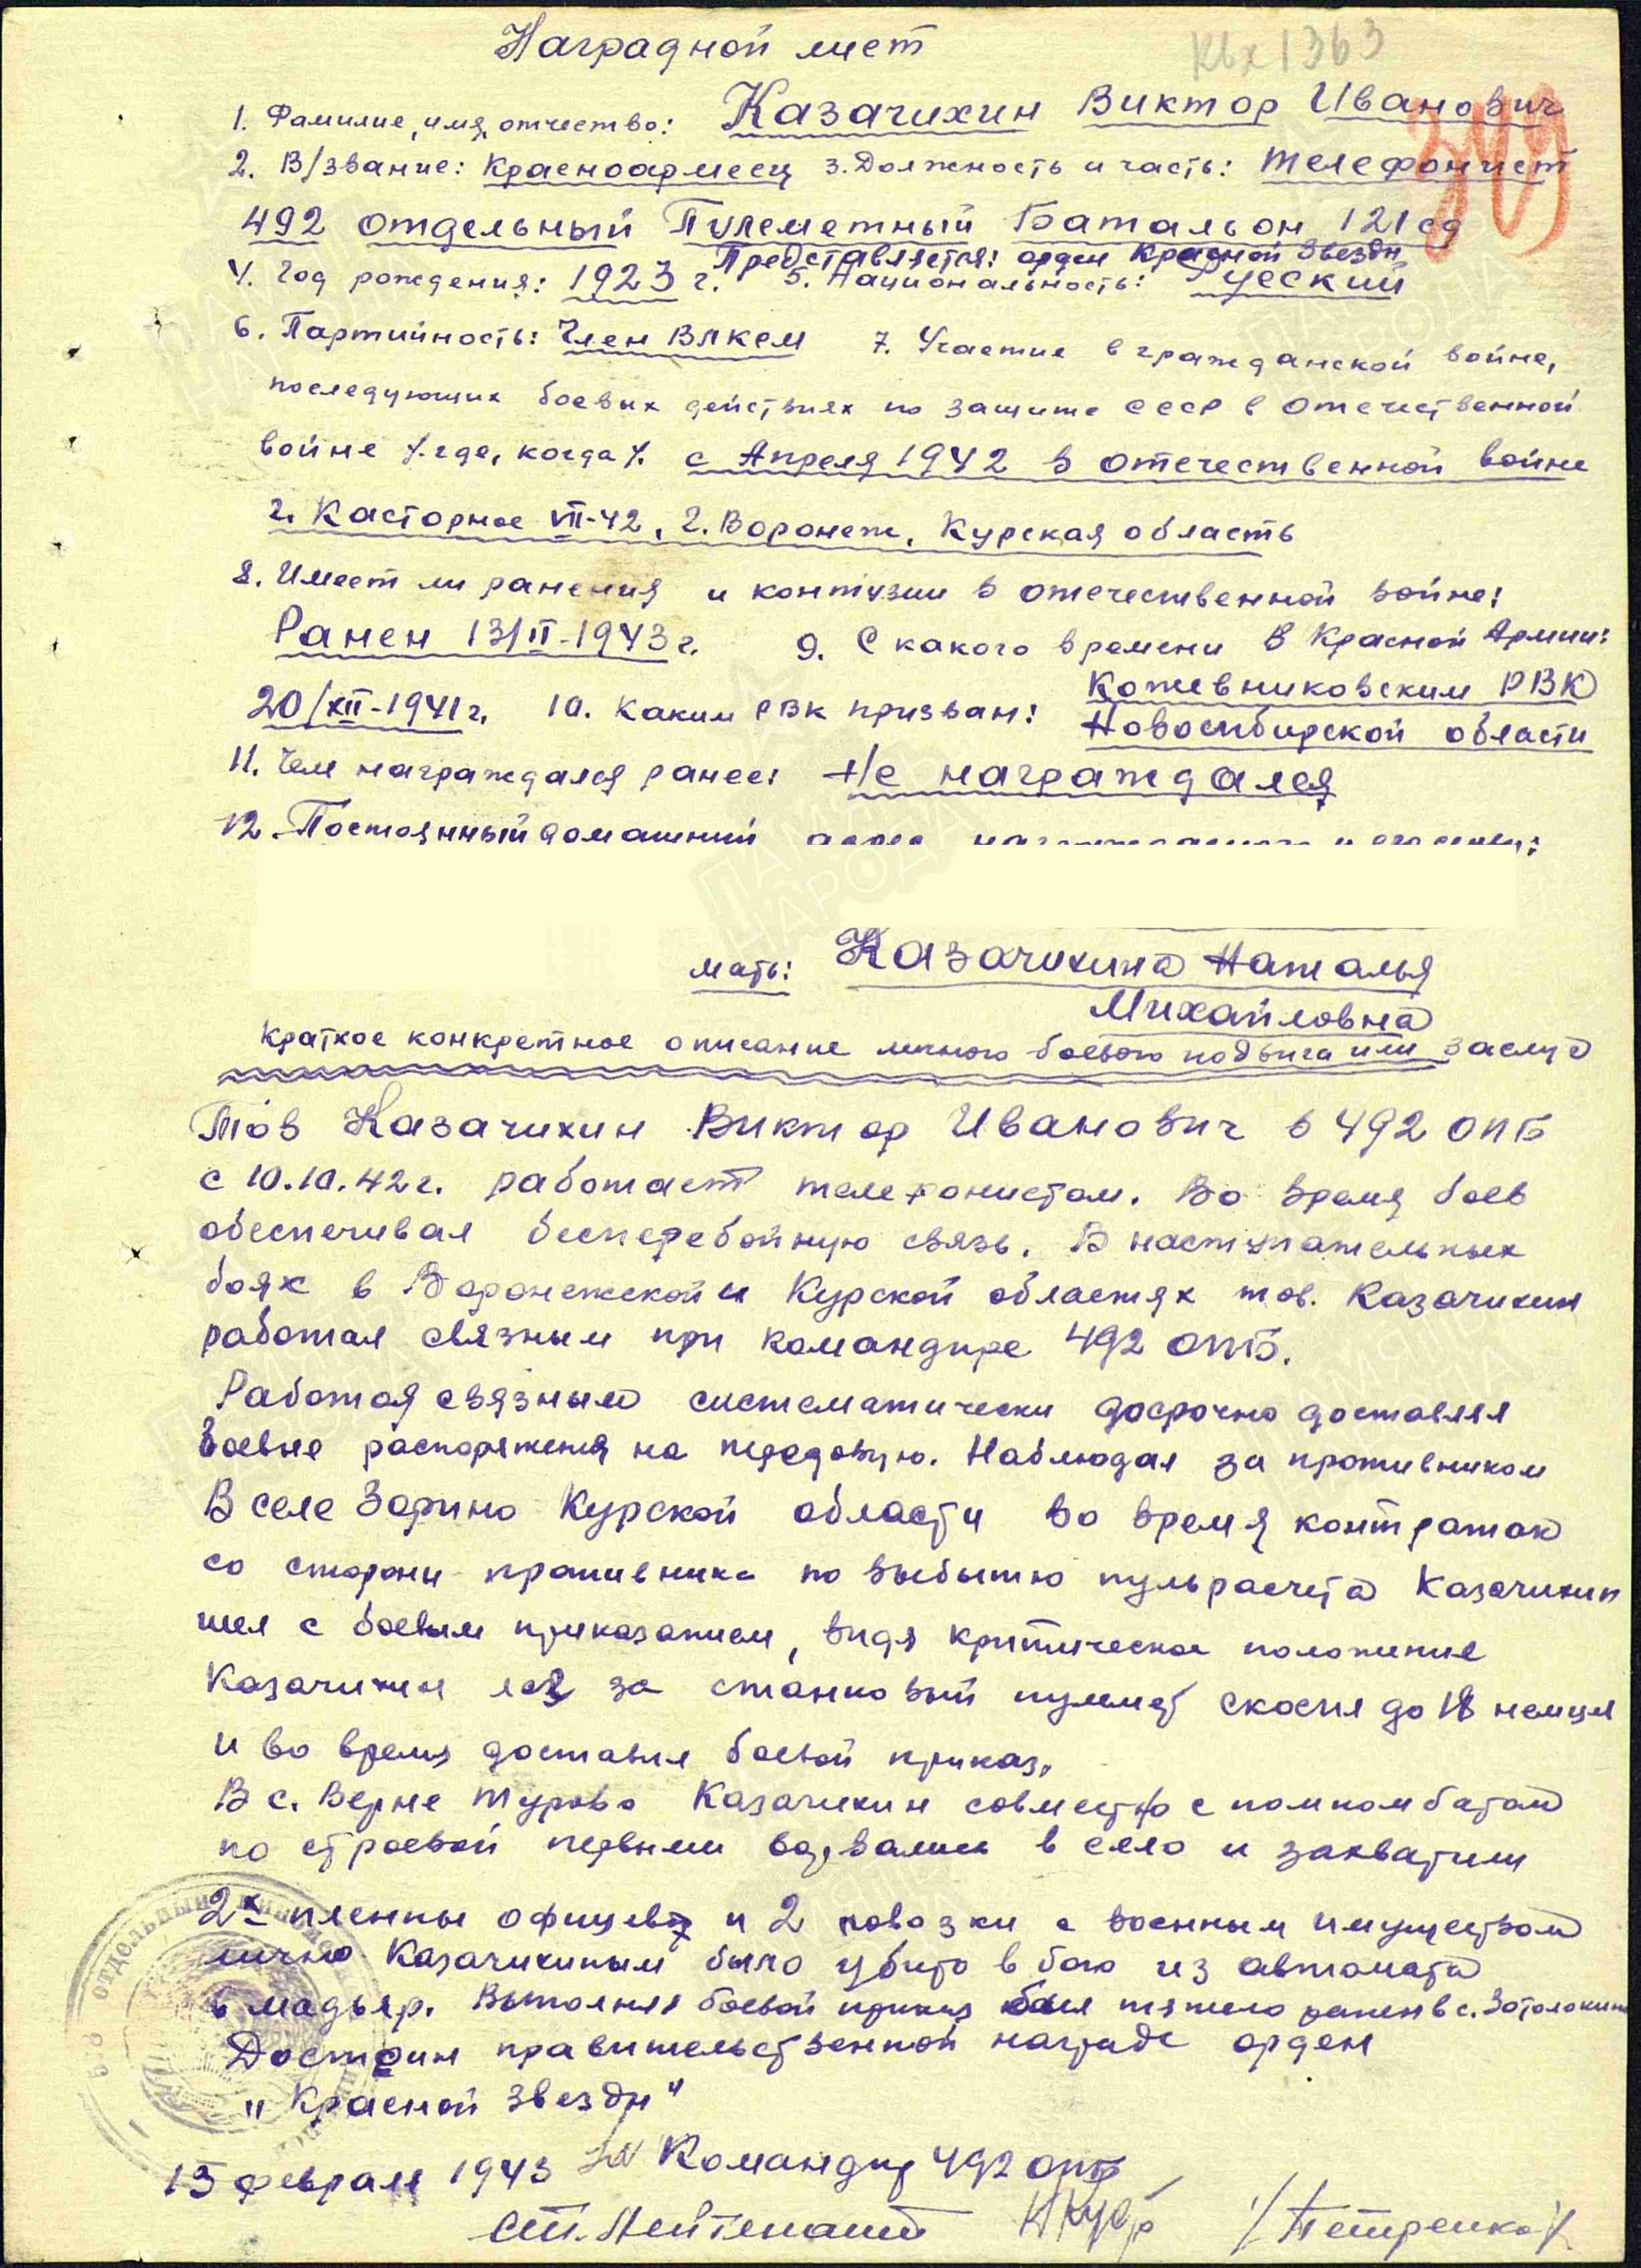 Наградной лист
Квх1363
1. Фамилие, имя, отчество: Казачихин Виктор Иванович
309
2. В/звание: Красноармеец 3. Должность и часть: Телефонист
492 отдельный Пулеметный Батальон 121 сд
Представляется: орден Красной Звезды
4. Год рождения: 1923 г. 5. Национальность: Русский
6. Партийность: Член ВЛКСМ 7. Участие в гражданской войне,
последующих боевых действиях по защите СССР в отечественной
войне /где, когда/. с Апреля 1942 в отечественной войне
г. Касторное VII-42, г. Воронеж, Курская область
8. Имеет ли ранения и контузии в отечественной войне:
Ранен 13/II-1943 г. 9. С какого времени в Красной Армии:
20/XII-1941 г. 10. Каким РВК призван: Кожевниковским РВК
Новосибирской области
11. Чем награждался ранее: Не награждался
12. Постоянный домашний адрес награждаемого и его семьи:
мать: Казачихина Наталья
Михайловна
Краткое конкретное описание личного боевого подвига или заслуг
Тов Казачихин Виктор Иванович в 492 ОПБ
с 10.10.42 г. работает телефонистом. Во время боев
обеспечивал бесперебойную связь. В наступательных
боях в Воронежской и Курской областях тов. Казачихин
работал связным при командире 492 ОПБ.
Работая связным систематически досрочно доставлял
боевые распоряжения на передовую. Наблюдая за противником
В селе Зорино Курской области во время контратак
со стороны противника по выбытию пульрасчета Казачихин
шел с боевым приказанием, видя критическое положение
Казачихин лег за станковый пулемет скосил до 18 немцев
и во время доставил боевой приказ.
В с. Верне Турово Казачихин совместно с помкомбатом
по строевой первыми ворвались в село и захватили
2х пленны офицеров и 2 повозки с военным имуществом
лично Казачихиным было убито в бою из автомата
6 мадьяр. Выполняя боевой приказ был тяжело ранен в с.
Достоин правительственной награде орден
„Красной Звезды"
15 февраля 1943 Командир 492 опб
Ст. Лейтенант /Петренко/